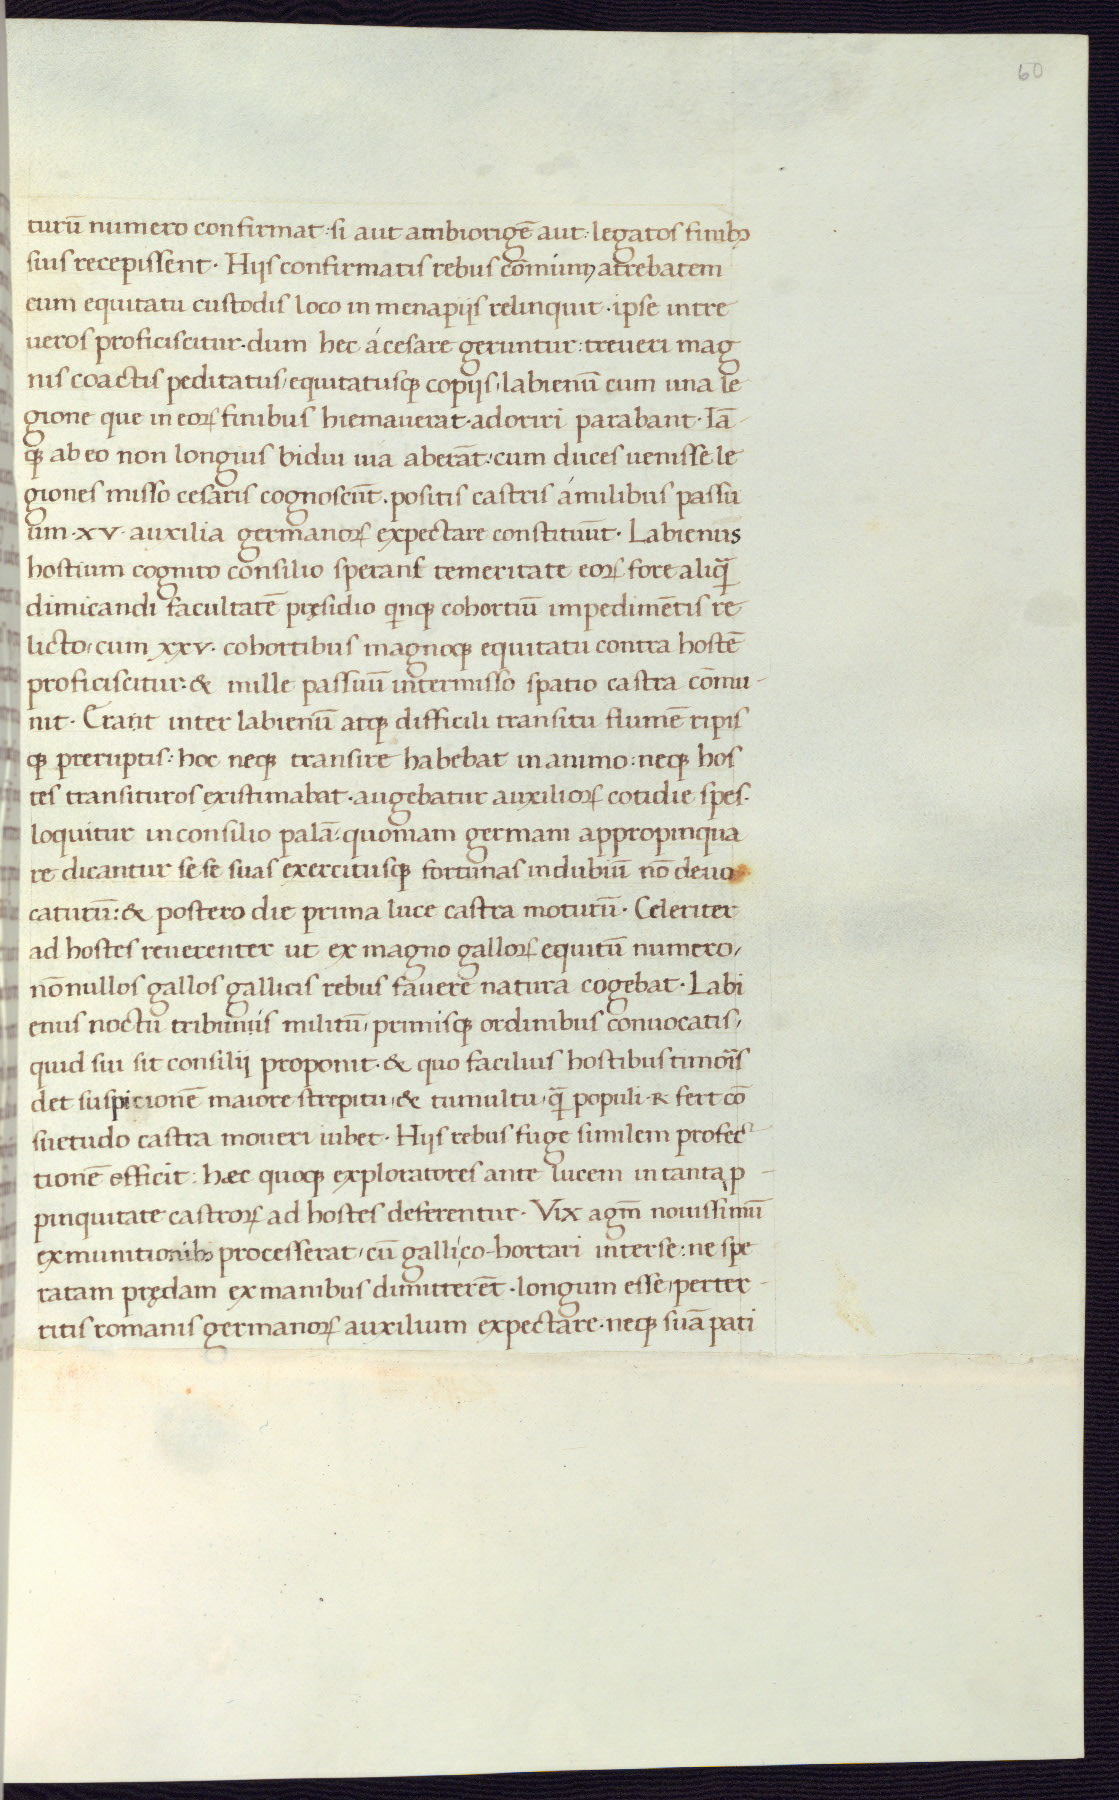 60
turū numero confirmat · si aut ambiorigē aut · legatos finibꝫ
suis recepissent · Hijs confirmatis rebus cōmium atrebatem
cum equitatu custodis loco in menapijs relinquit · ipse in tre
ueros proficiscitur · dum hec á cesare geruntur : treueri mag
nis coactis peditatus / equitatusqꝫ copijs / labienū cum una le
gione que in eorꝝ finibus hiemauerat · adoriri parabant · Iā
qꝫ ab eo non longius bidui uia aberāt : cum duces uenisse le
giones misso cesaris cognoscūt · positis castris á milibus passu
um · xv · auxilia germanorꝝ expectare constituūt · Labienus
hostium cognito consilio sperans temeritate eorꝝ fore aliqᷓ
dimicandi facultatē pręsidio qͥnqꝫ cohortiū impedimētis re
licto / cum xxv · cohortibus magnoqꝫ equitatu contra hostē
proficiscitur : & mille passuū intermisso spatio castra cōmu-
nit · Erant inter labienū atqꝫ difficili transitu flumē ripis
qꝫ preruptis : hoc neqꝫ transire habebat in animo : neqꝫ hos
tes transituros existimabat · augebatur auxiliorꝝ cotidie spes ·
loquitur in consilio palā : quoniam germani appropinqua
re dicantur se se suas exercitusqꝫ fortunas in dubiū nō deuo
caturū : & postero die prima luce castra moturū · Celeriter
ad hostes reuerenter ut ex magno gallorꝝ equitū numero /
nōnullos gallos gallicis rebus fauere natura cogebat · Labi
enus noctū tribunis militū / primisqꝫ ordinibus conuocatis /
quid sui sit consilij proponit · & quo facilius hostibus timoris
det suspicionē maiore strepitu / & tumultu / qᷓ populi · R · fert cō
suetudo castra moueri iubet · Hijs rebus fuge similem profec-
tionē efficit : hæc quoqꝫ exploratores ante lucem in tanta ꝓ-
pinquitate castrorꝝ ad hostes deferentur · Vix agm̄ nouissimū
ex munitionibꝫ processerat / cū gallico hortari inter se : ne spe
ratam prędam ex manibus dimitterēt · longum esse / perter-
ritis romanis germanorꝝ auxilium expectare · neqꝫ suā pati